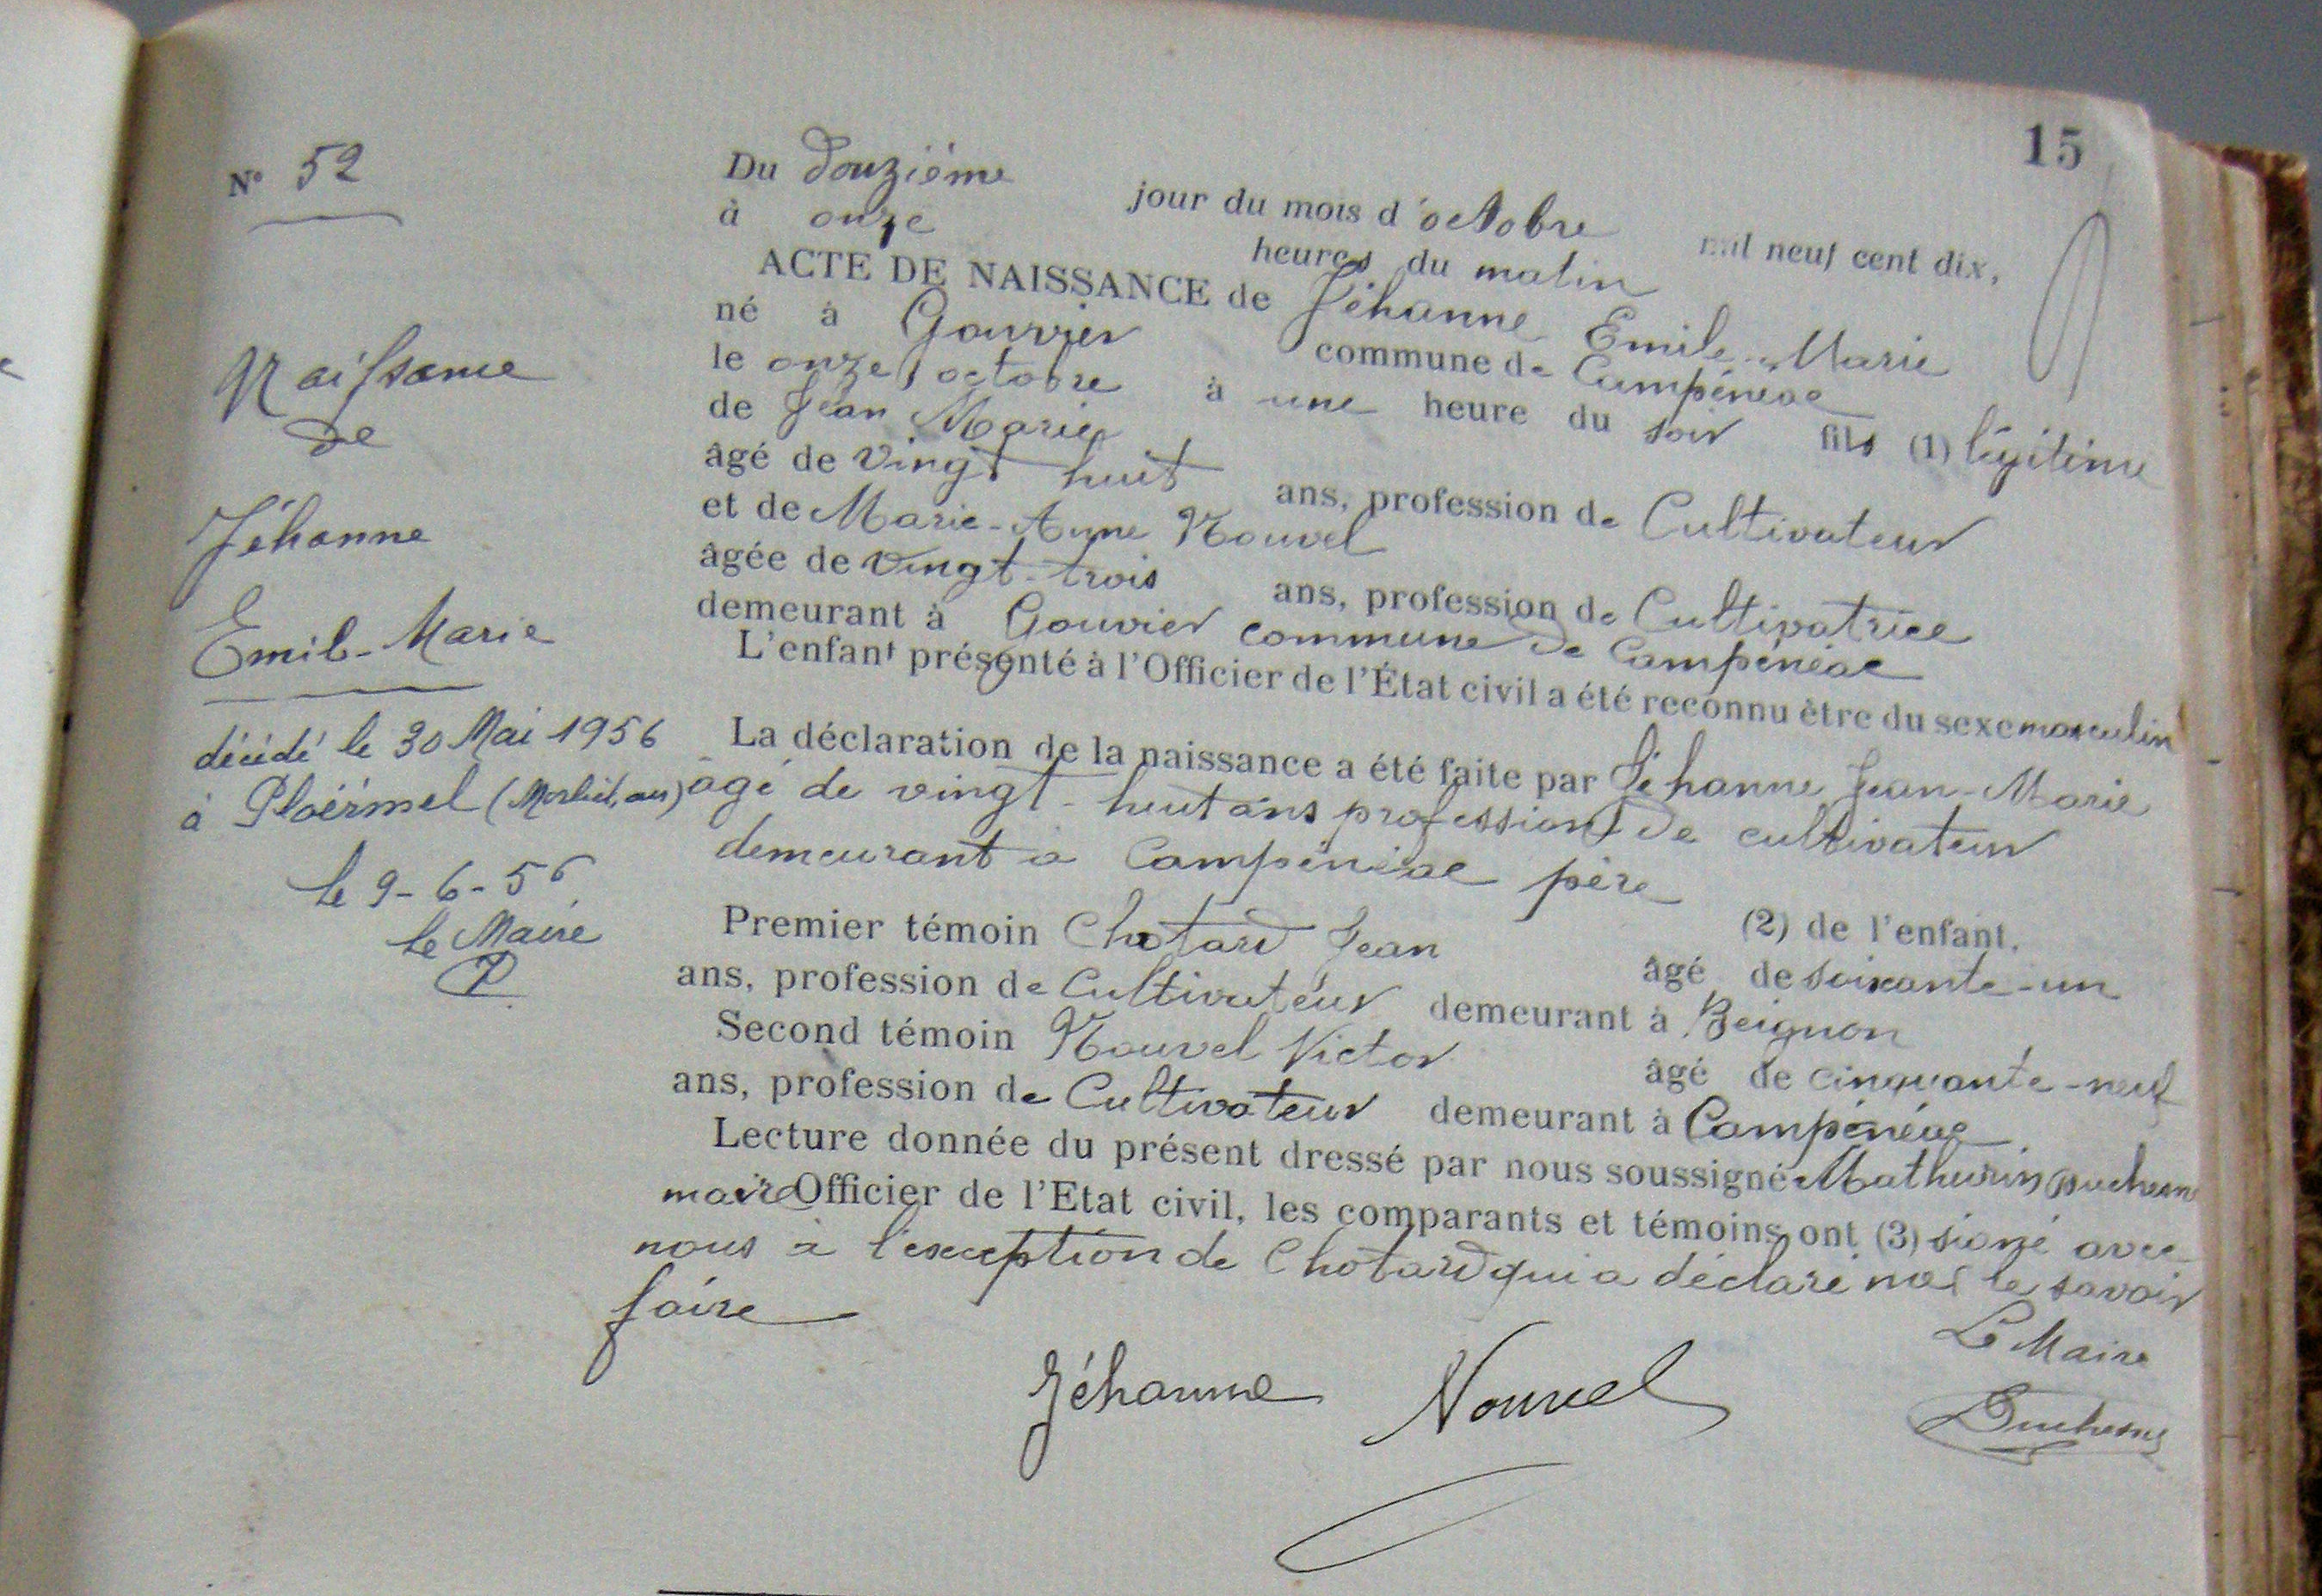 15
N° 52
Naissance
de
Jéhanne
Emile-Marie
décédé le 30 Mai 1956
à Ploërmel (Morbihan)
le 9-6-56
le Maire
Du douzième jour du mois d'octobre mil neuf cent dix,
à onze heures du matin
ACTE DE NAISSANCE de Jéhanne Emile-Marie
né à Gouvier commune de Campénéac
le onze octobre à une heure du soir fils (1) légitime
de Jean Marie
âgé de vingt huit ans, profession de Cultivateur
et de Marie-Anne Nouvel
âgée de vingt-trois ans, profession de Cultivatrice
demeurant à Gouvier commune de Campénéac
L'enfant présenté à l'Officier de l'État civil a été reconnu être du sexe masculin
La déclaration de la naissance a été faite par Jéhanne Jean-Marie
âgé de vingt-huit ans profession de cultivateur
demeurant à Campénéac père (2) de l'enfant.
Premier témoin Chotard Jean âgé de soixante-un
ans, profession de Cultivateur demeurant à Beignon
Second témoin Nouvel Victor âgé de cinquante-neuf
ans, profession de Cultivateur demeurant à Campénéac
Lecture donnée du présent dressé par nous soussigné Mathurin Duchesne
maire Officier de l'Etat civil, les comparants et témoins ont (3) signé avec
nous à l'exception de Chotard qui a déclaré ne le savoir
faire
Le Maire
Jéhanne Nouvel Duchesne